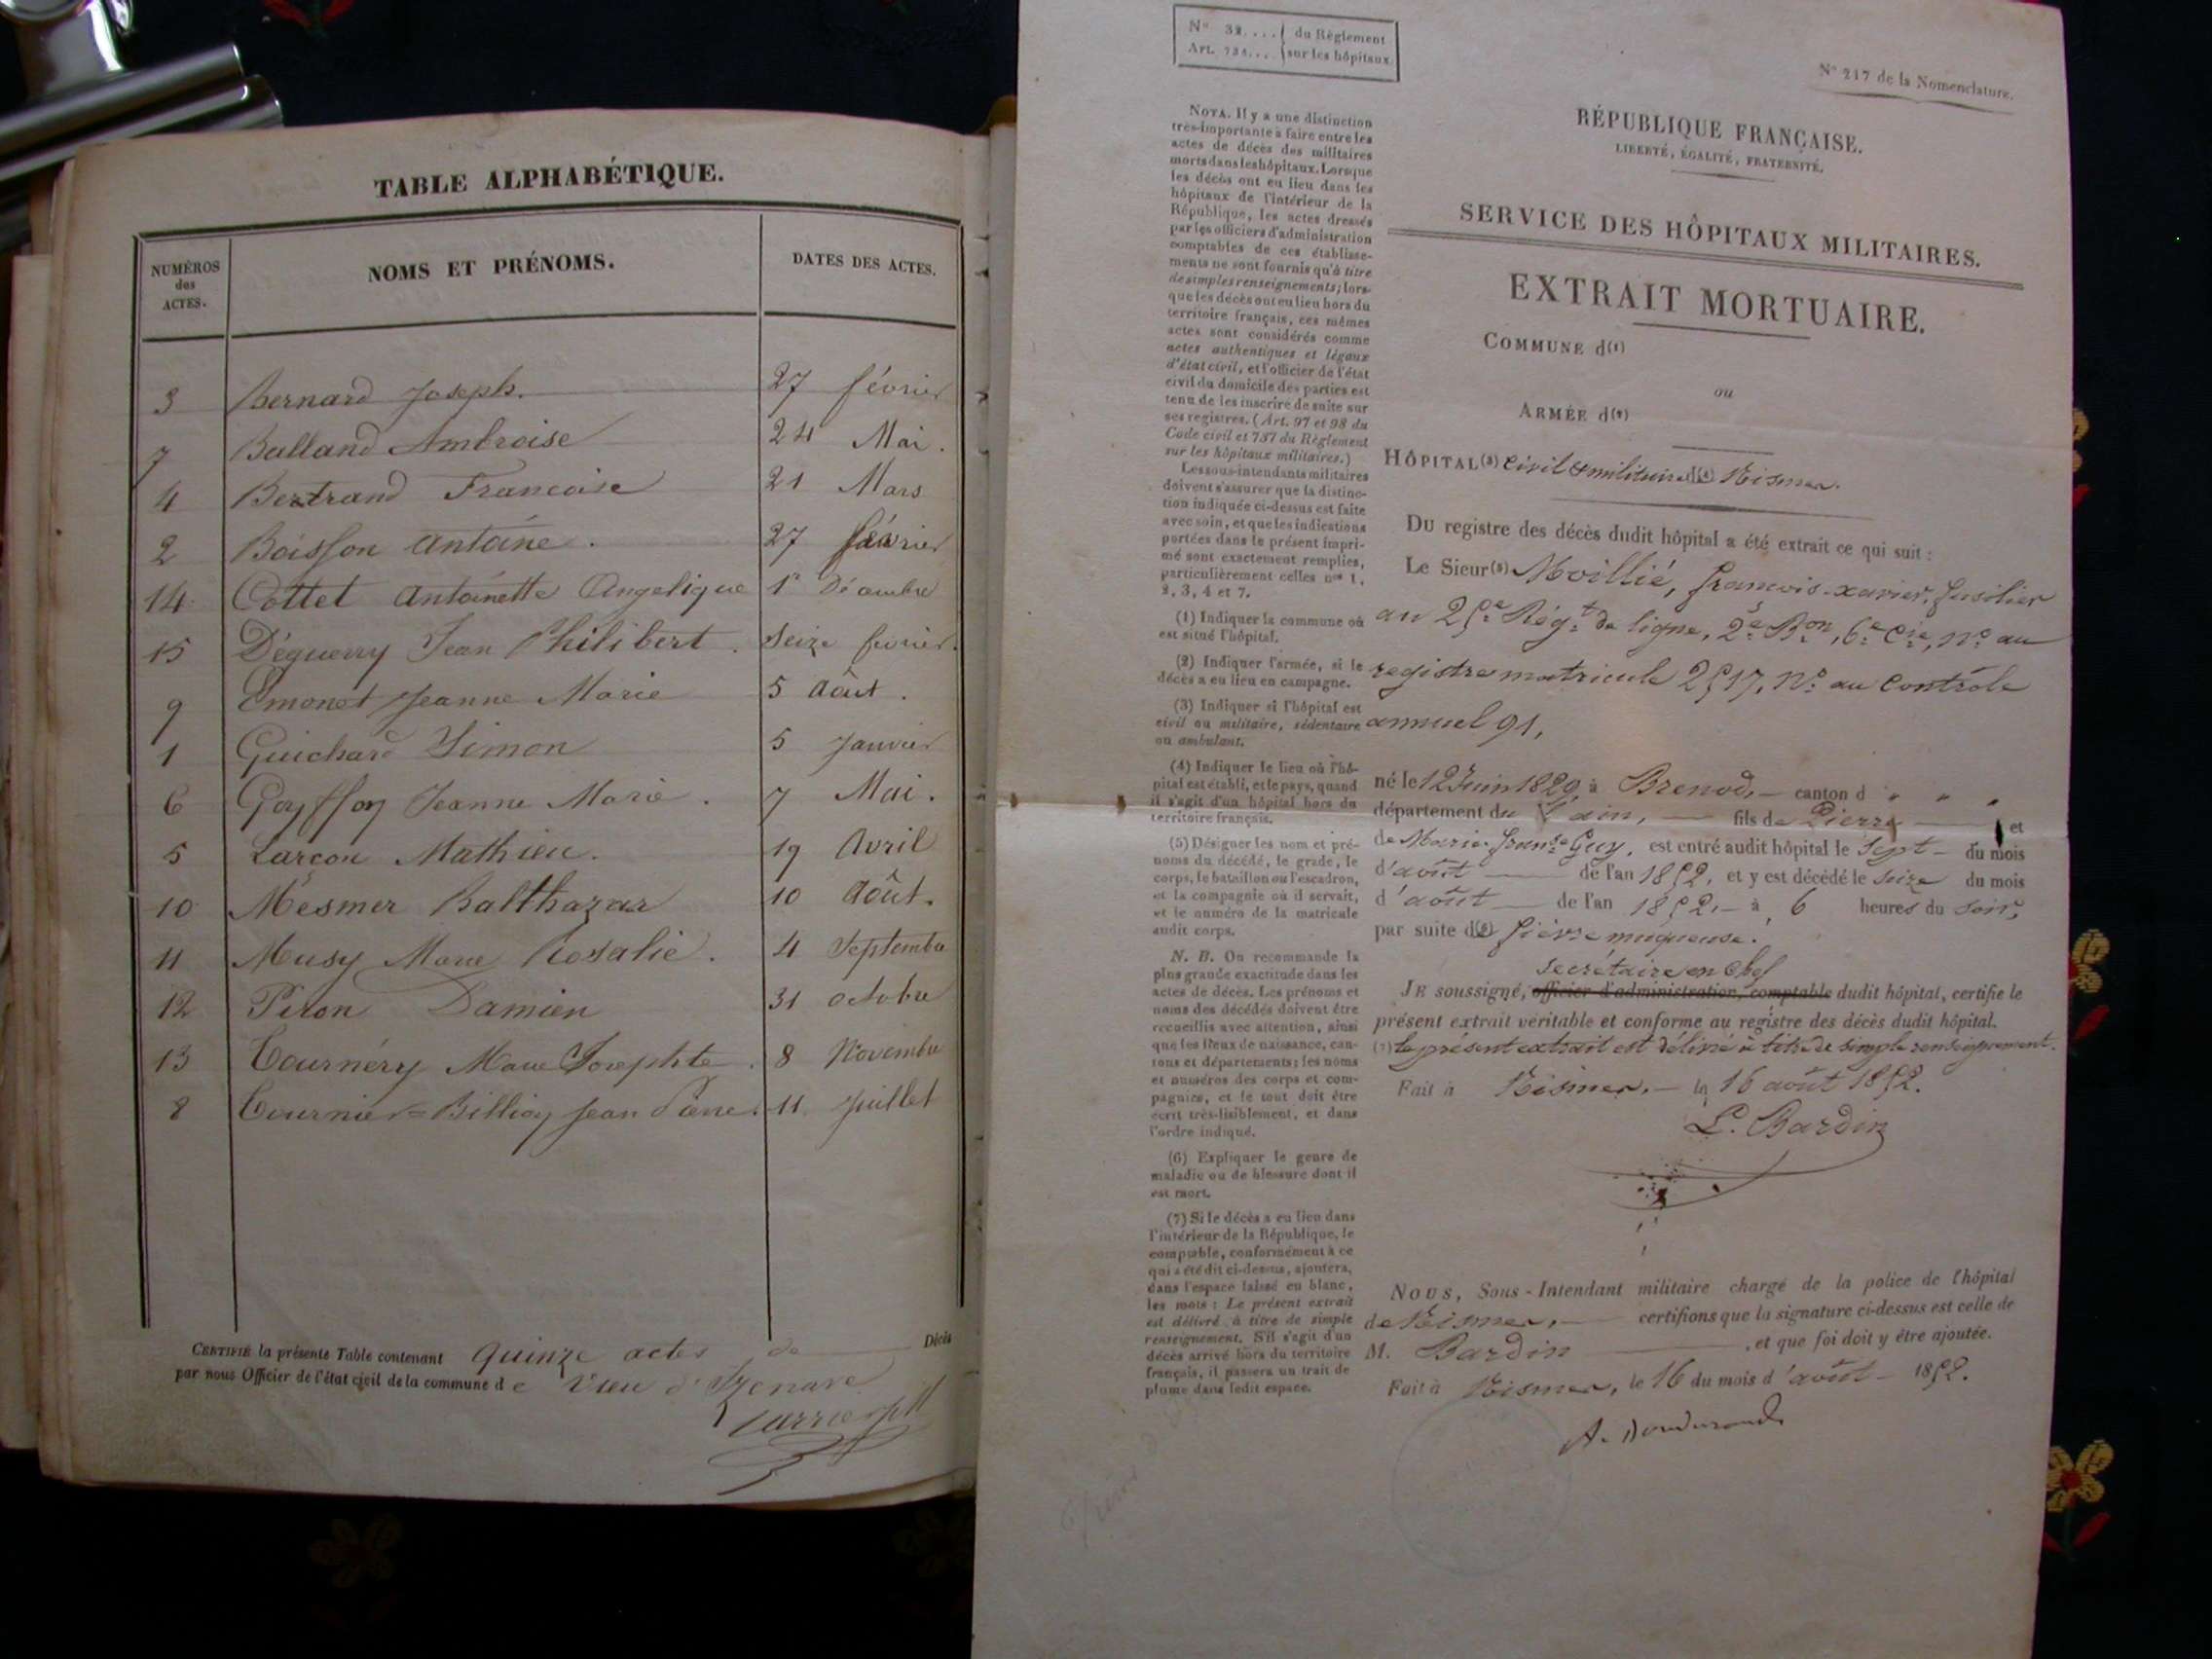 TABLE ALPHABÉTIQUE.
NUMÉROS des ACTES.
NOMS ET PRÉNOMS.
DATES DES ACTES.
3 Bernard Joseph. 27 février
7 Balland Ambroise 24 Mai.
4 Bertrand Francoise 21 Mars
2 Boisson Antoine. 27 février
14 Cottet Antoinette Angelique 1r Décembre
15 Déguerry Jean Philibert. Seize fevrier.
9 Emonet Jeanne Marie 5 Août.
1 Guichard Simon 5 Janvier
6 Goyffoy Jeanne Marie. 7 Mai.
5 Larçon Mathieu. 19 Avril
10 Mesmer Balthazar 10 Août.
11 Musy Marie Rosalie. 4 Septembre
12 Piron Damien 31 octobre
13 Tournéry Marie Josephte. 8 Novembre
8 Tournier=Billioy Jean Pierre. 11 Juillet
CERTIFIÉ la présente Table contenant quinze actes de Décès
par nous Officier de l'état civil de la commune de Vieu d'Izenave
No 32.... du Règlement
Art. 734... sur les hôpitaux
No 217 de la Nomenclature.
RÉPUBLIQUE FRANÇAISE.
LIBERTÉ, ÉGALITÉ, FRATERNITÉ.
SERVICE DES HÔPITAUX MILITAIRES.
EXTRAIT MORTUAIRE.
COMMUNE d(1)
ou
ARMÉE d(2)
HÔPITAL(3) Civil & militaire d(4) Nismes.
Du registre des décès dudit hôpital a été extrait ce qui suit :
Le Sieur(5) Moillié, francois-xavier, fusilier
au 25e Régt de ligne, 2e Bon, 6e Cie, No au
registre matricule 2517, No au Contrôle
annuel 91,
né le 12 Juin 1829, à Brenod, canton d " " "
département du l'ain, fils de Pierre et
de Marie franse Guy, est entré audit hôpital le sept du mois
d'août de l'an 1852, et y est décédé le seize du mois
d'août de l'an 1852, à 6 heures du soir,
par suite d(6) fièvre muqueuse.
secrétaire en Chef
JE soussigné, officier d'administration, comptable dudit hôpital, certifie le
présent extrait véritable et conforme au registre des décès dudit hôpital.
(7) le présent extrait est délivré à titre de simple renseignement.
Fait à Nismes, le 16 août 1852.
L. Bardin
NOUS, Sous-Intendant militaire chargé de la police de l'hôpital
de Nismes, certifions que la signature ci-dessus est celle de
M. Bardin, et que foi doit y être ajoutée.
Fait à Nismes, le 16 du mois d'août 1852.
NOTA. Il y a une distinction
très-importante à faire entre les
actes de décès des militaires
morts dans les hôpitaux. Lorsque
les décès ont eu lieu dans les
hôpitaux de l'intérieur de la
République, les actes dressés
par les officiers d'administration
comptables de ces établisse-
ments ne sont fournis qu'à titre
de simples renseignements; lors-
que les décès ont eu lieu hors du
territoire français, ces mêmes
actes sont considérés comme
actes authentiques et légaux
d'état civil, et l'officier de l'état
civil du domicile des parties est
tenu de les inscrire de suite sur
ses registres. (Art. 97 et 98 du
Code civil et 737 du Règlement
sur les hôpitaux militaires.)
Les sous-intendants militaires
doivent s'assurer que la distinc-
tion indiquée ci-dessus est faite
avec soin, et que les indications
portées dans le présent impri-
mé sont exactement remplies,
particulièrement celles nos 1,
2, 3, 4 et 7.
(1) Indiquer la commune où
est situé l'hôpital.
(2) Indiquer l'armée, si le
décès a eu lieu en campagne.
(3) Indiquer si l'hôpital est
civil ou militaire, sédentaire
ou ambulant.
(4) Indiquer le lieu où l'hô-
pital est établi, et le pays, quand
il s'agit d'un hôpital hors du
territoire français.
(5) Désigner les nom et pré-
noms du décédé, le grade, le
corps, le bataillon ou l'escadron,
et la compagnie où il servait,
et le numéro de la matricule
audit corps.
N. B. On recommande la
plus grande exactitude dans les
actes de décès. Les prénoms et
noms des décédés doivent être
recueillis avec attention, ainsi
que les lieux de naissance, can-
tons et départements; les noms
et numéros des corps et com-
pagnies, et le tout doit être
écrit très-lisiblement, et dans
l'ordre indiqué.
(6) Expliquer le genre de
maladie ou de blessure dont il
est mort.
(7) Si le décès a eu lieu dans
l'intérieur de la République, le
comptable, conformément à ce
qui a été dit ci-dessus, ajoutera,
dans l'espace laissé en blanc,
les mots : Le présent extrait
est délivré à titre de simple
renseignement. S'il s'agit d'un
décès arrivé hors du territoire
français, il passera un trait de
plume dans ledit espace.